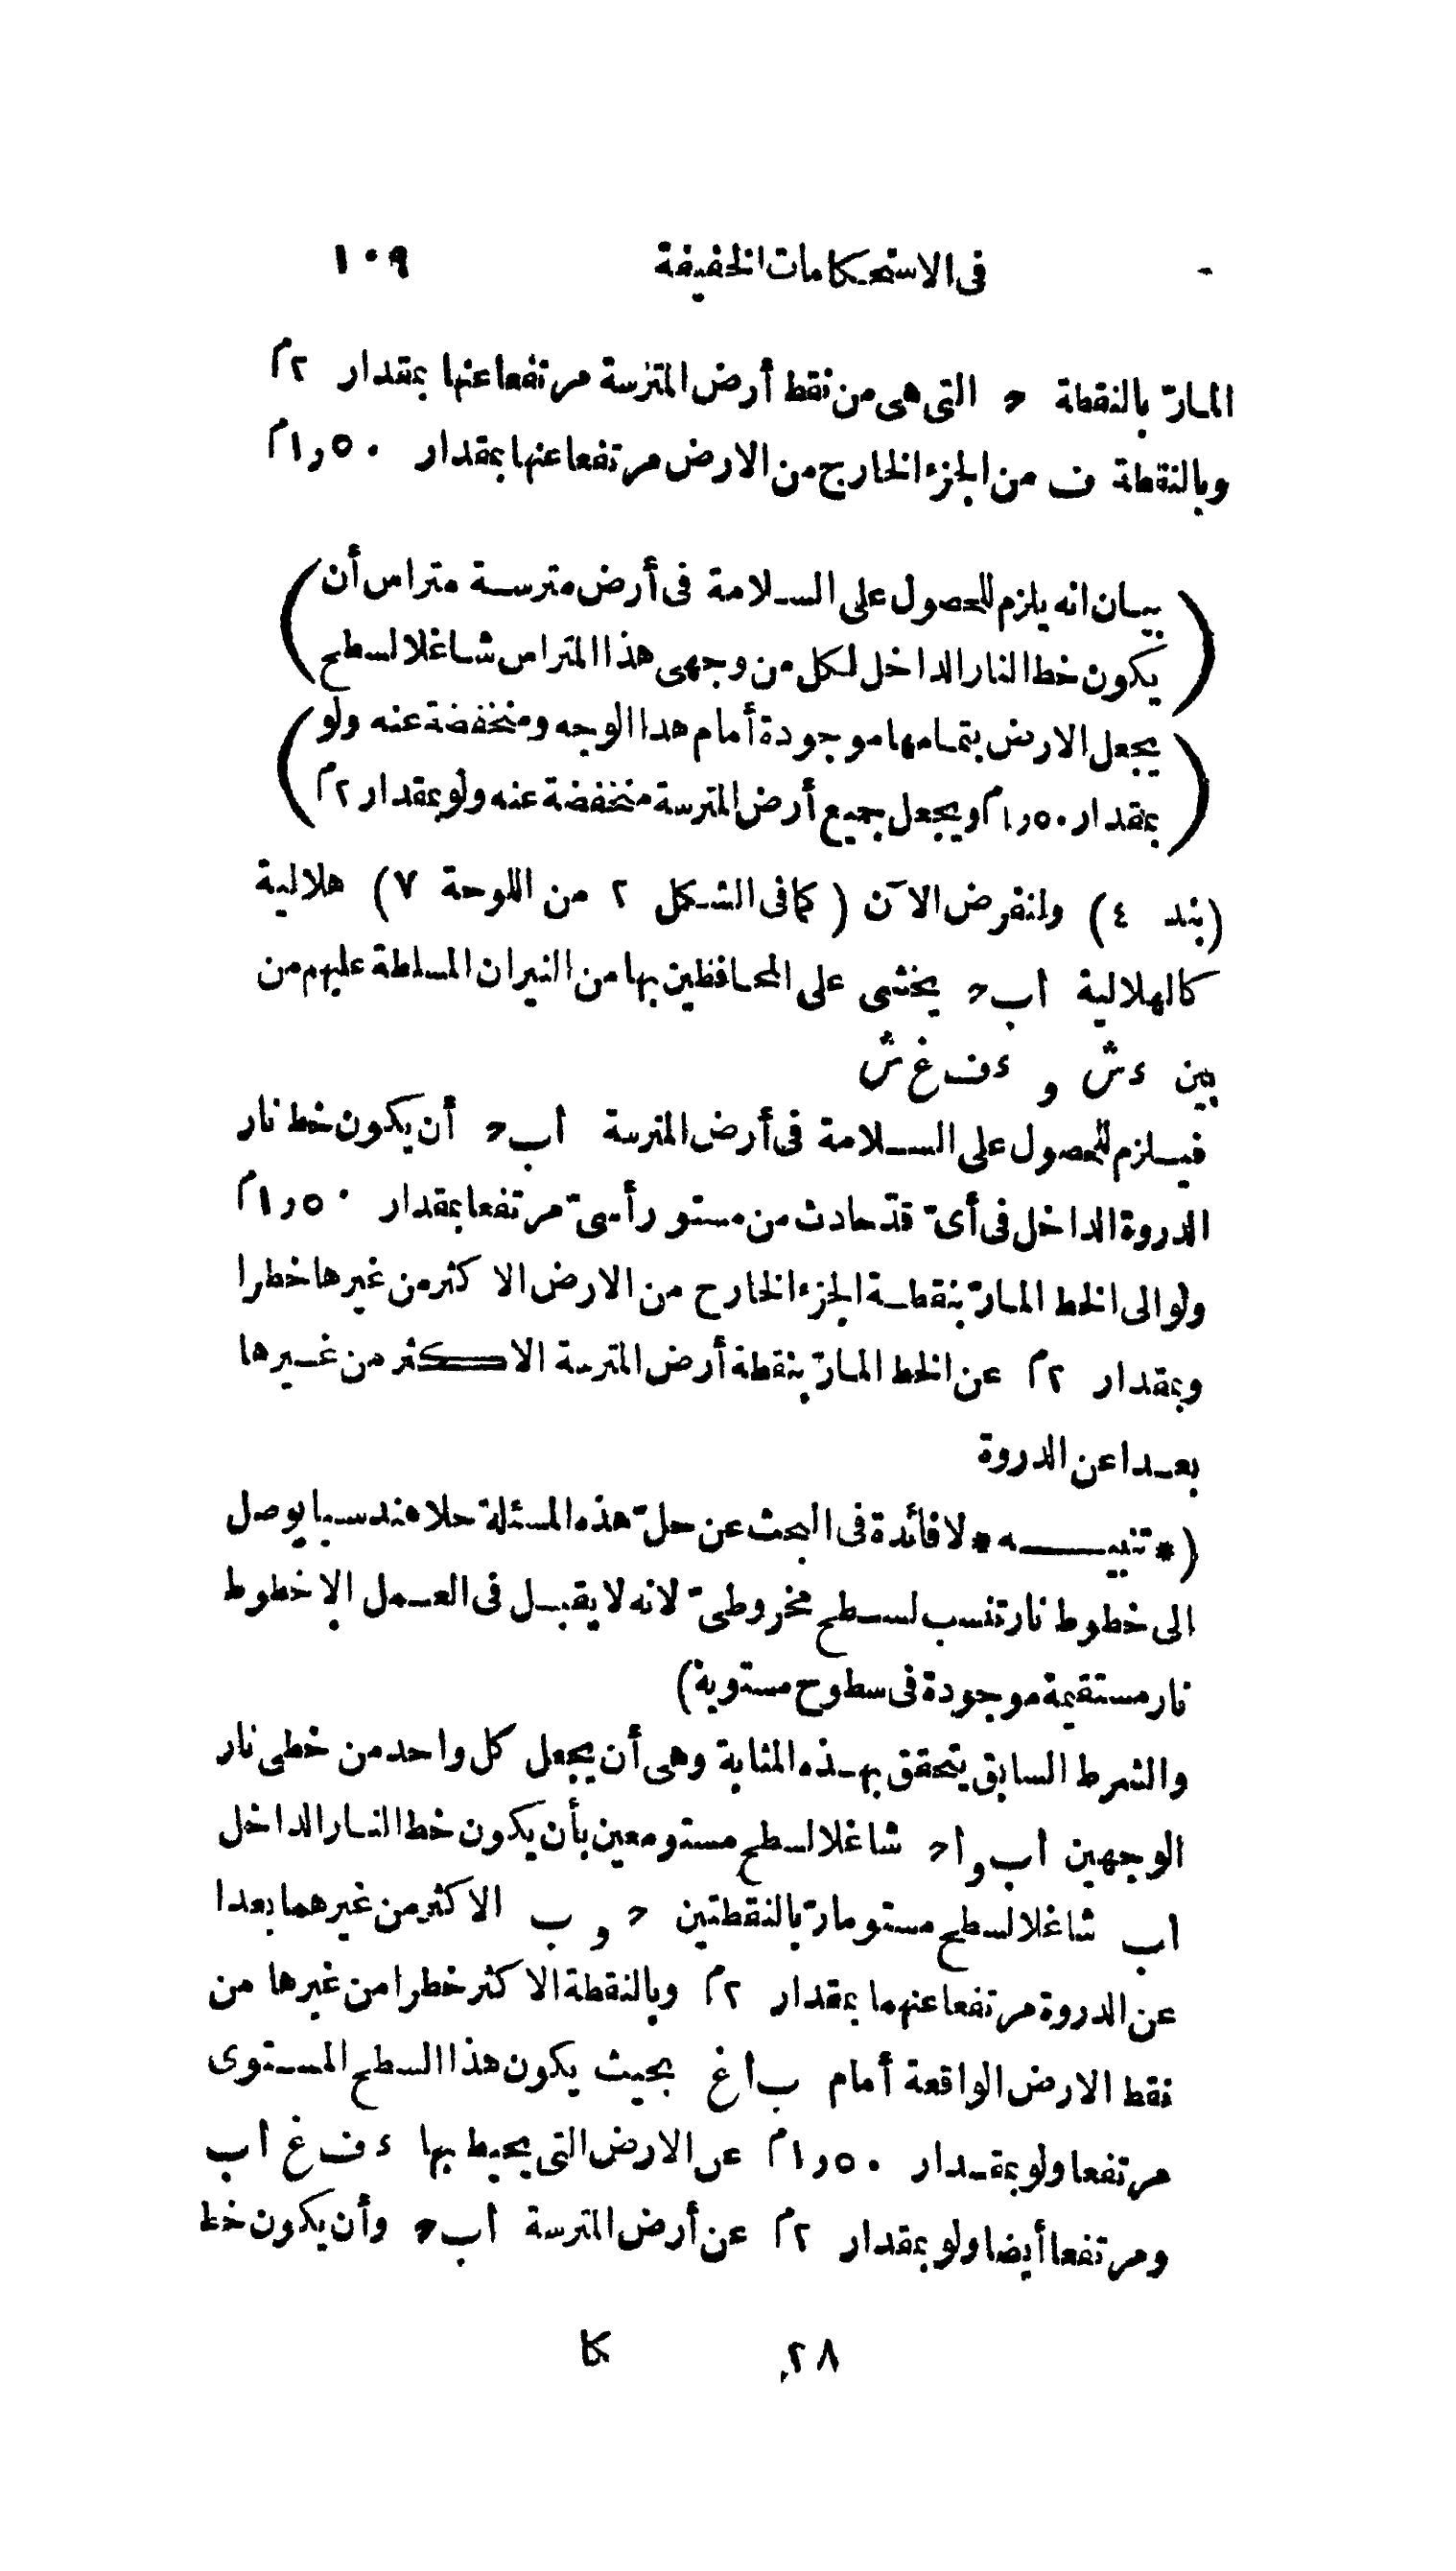 فى الاستحكامات الخفيفة ١٠٩
المارّ بالنقطة ح التى هى من نقط أرض المترسة مرتفعا عنها بمقدار ٢م
وبالنقطة ف من الجزء الخارج من الارض مرتفعا عنها بمقدار ١٫٥٠م
(بيان انه يلزم للحصول على السلامة فى أرض مترسة متراس أن)
يكون خط النار الداخل لكل من وجهى هذا المتراس شاغلا لسطح
(يجعل الارض بتمامها موجودة أمام هذا الوجه ومنخفضة عنه ولو)
بمقدار ١٫٥٠م ويجعل جميع أرض المترسة منخفضة عنه ولو بمقدار ٢م
(بند ٤) ولنفرض الآن (كما فى الشكل ٢ من اللوحة ٧) هلالية
كالهلالية اب ح يخشى على المحافظين بها من النيران المسلطة عليهم من
بين ء ش و ء ف غ ش
فيلزم للحصول على السلامة فى أرض المترسة اب ح أن يكون خط نار
الدروة الداخل فى أىّ قدّ حادث من مستو رأسىّ مرتفعا بمقدار ١٫٥٠م
ولو الى الخط المارّ بنقطة الجزء الخارج من الارض الاكثر من غيرها خطرا
وبمقدار ٢م عن الخط المارّ بنقطة أرض المترسة الاكثر من غيرها
بعدا عن الدروة
(* تنبيه * لا فائدة فى البحث عن حلّ هذه المسئلة حلا هندسيا يوصل
الى خطوط نار تنسب لسطح مخروطىّ لانه لا يقبل فى العمل الا خطوط
نار مستقيمة موجودة فى سطوح مستوية)
والشرط السابق يتحقق بهذه المثابة وهى أن يجعل كل واحد من خطى نار
الوجهين اب و اح شاغلا لسطح مستو معين بأن يكون خط النار الداخل
اب شاغلا لسطح مستو مارّ بالنقطتين ح و ب الاكثر من غيرهما بعدا
عن الدروة مرتفعا عنهما بمقدار ٢م وبالنقطة الاكثر خطرا من غيرها من
نقط الارض الواقعة أمام ب ا غ بحيث يكون هذا السطح المستوى
مرتفعا ولو بمقدار ١٫٥٠م عن الارض التى يحيط بها ء ف غ اب
ومرتفعا أيضا ولو بمقدار ٢م عن أرض المترسة اب ح وأن يكون خط
٢٨ كا